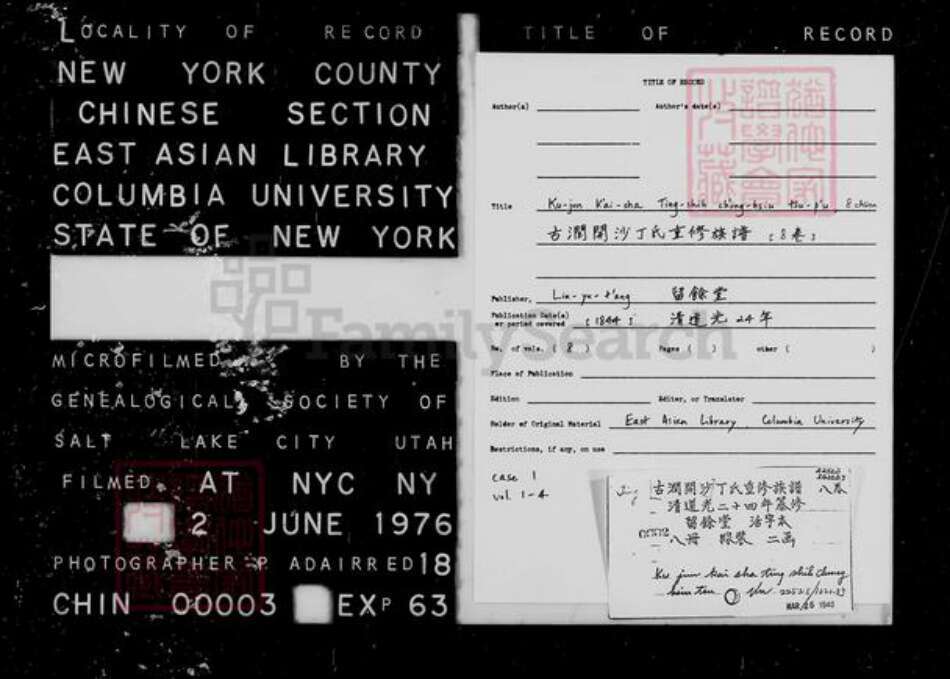 LOCALITY OF RECORD
NEW YORK COUNTY
CHINESE SECTION
EAST ASIAN LIBRARY
COLUMBIA UNIVERSITY
STATE OF NEW YORK
MICROFILMED BY THE
GENEALOGICAL SOCIETY OF
SALT LAKE CITY UTAH
FILMED AT NYC NY
2 JUNE 1976
PHOTOGRAPHER P. ADAIR RED 18
CHIN 00003 EXP 63
TITLE OF RECORD
TITLE OF RECORD
Author(s) Author's date(s)
Title Ku-jun K'ai-sha Ting-shih ch'ung-hsiu tsu-p'u, 8 chüan
古潤開沙丁氏重修族譜 (8卷)
Publisher, Liu-yu-t'ang 留餘堂
Publication Date(s) or period covered (1844) 清道光24年
No. of vols. (8) Pages ( ) other ( )
Place of Publication
Edition Editor, or Translator
Holder of Original Material East Asian Library, Columbia University
Restrictions, if any, on use
case 1
vol. 1-4
古潤開沙丁氏重修族譜 八卷
清道光二十四年纂修
留餘堂 活字本
八冊 線裝 二函
Ku jun kai sha ting shih chung
hsiu tsu
MAR 26 1940
FamilySearch